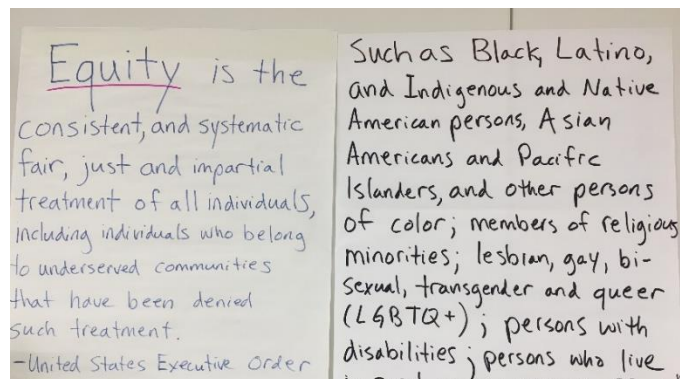 Equity is the
consistent, and systematic
fair, just and impartial
treatment of all individuals,
including individuals who belong
to underserved communities
that have been denied
such treatment.
-United States Executive Order
Such as Black, Latino,
and Indigenous and Native
American persons, Asian
Americans and Pacific
Islanders, and other persons
of color; members of religious
minorities; lesbian, gay, bi-
sexual, transgender and queer
(LGBTQ+); persons with
disabilities; persons who live